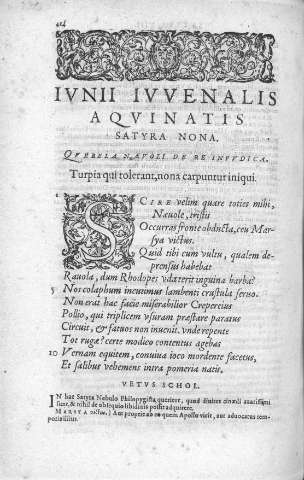 414
IVNII IVVENALIS
AQVINATIS
SATYRA NONA.
QVERELA NÆVOLI DE RE INIVDICA.
Turpia qui tolerant, nona carpuntur iniqui.
1 SCIRE velim quare toties mihi,
Næuole, tristis
Occurras fronte obducta, ceu Mar-
sya victus.
Quid tibi cum vultu, qualem de-
prensus habebat
Rauola, dum Rhodopes vda terit inguina barba?
5 Nos colaphum incutimus lambenti crustula seruo.
Non erat hac facie miserabilior Crepereius
Pollio, qui triplicem vsuram præstare paratus
Circuit, & fatuos non inuenit. vnde repente
Tot rugæ? certe modico contentus agebas
10 Vernam equitem, conuiua ioco mordente facetus,
Et salibus vehemens intra pomeria natis.
VETVS SCHOL.
IN hac Satyra Nebulo Philopygista queritur, quod diuites cinædi auarissimi
sint, & nihil de obsequio libidinis possit adquirere.
MARSYA victus.] Aut propriè ab eo quem Apollo vicit, aut aduocatus tem-